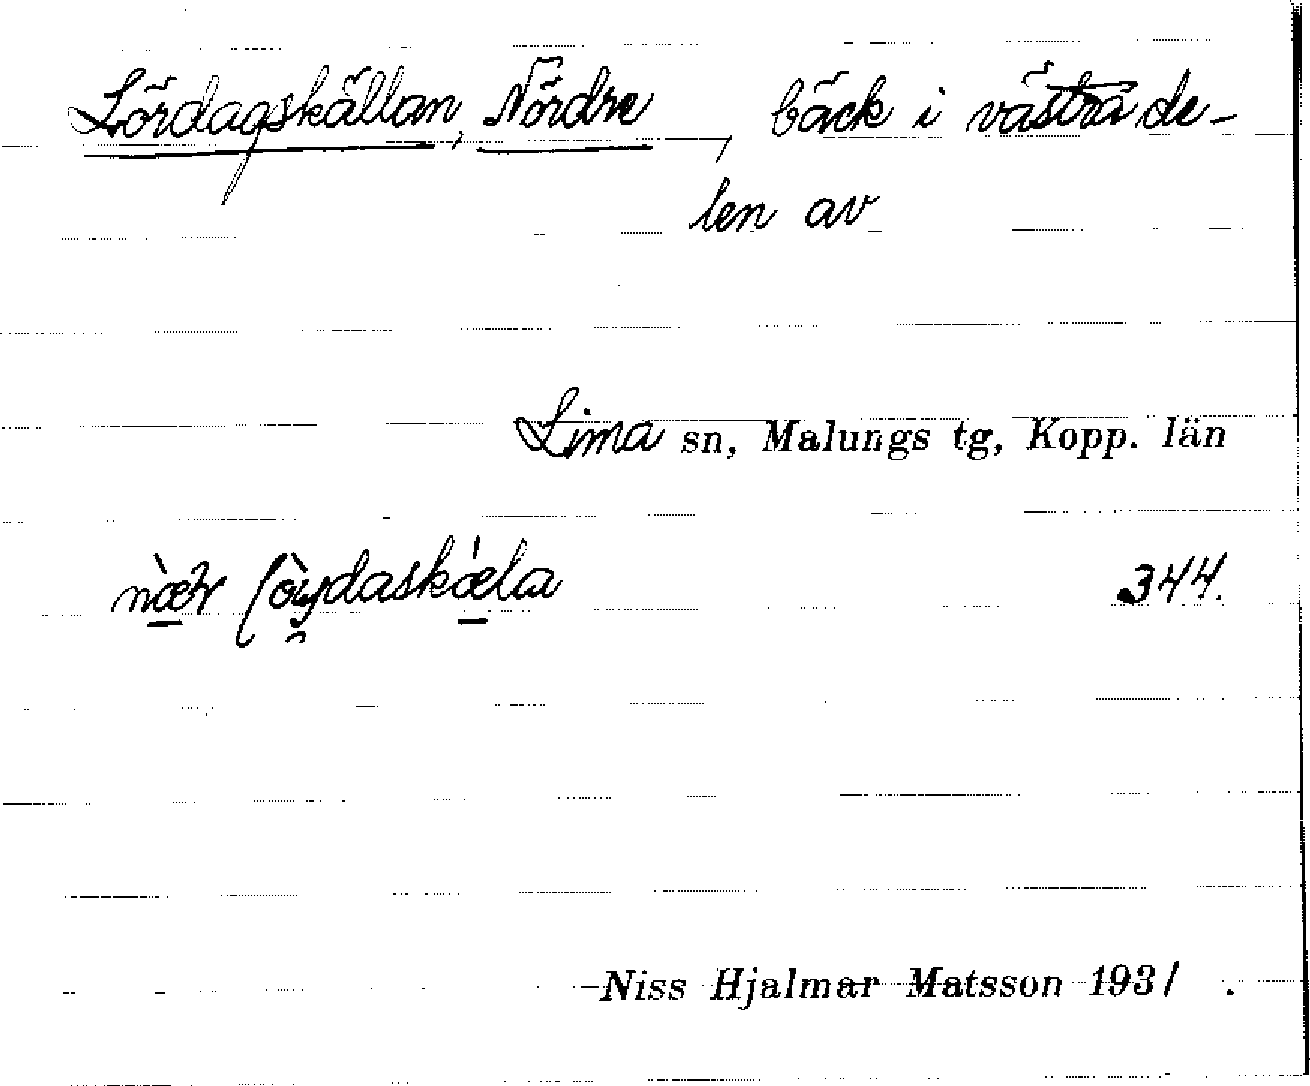 Lördagskällan, Nördre, bäck i västra de-
len av
Lima sn, Malungs tg, Kopp. län
344.
Niss Hjalmar Matsson 1931.